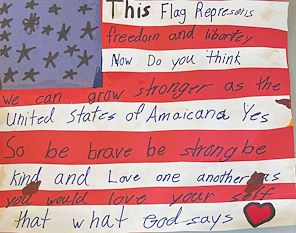 This Flag Represents
freedom and libertey
Now Do you think
we can grow stronger as the
United States of Amaicana Yes
So be brave be strong be
kind and Love one another as
you would love your self
that what God says